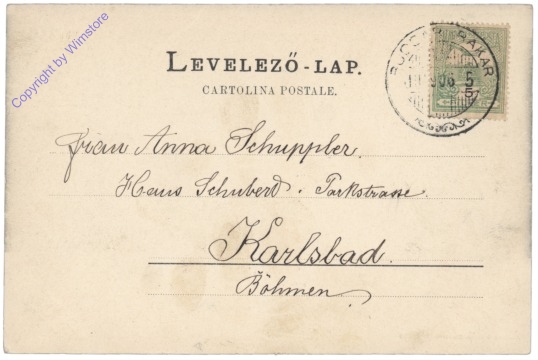 Copyright by Wimstore
LEVELEZŐ-LAP.
CARTOLINA POSTALE.
BUCCARI BAKAR
906 5
5
Frau Anna Schuppler.
Haus Schubert. Parkstrasse.
Karlsbad.
Böhmen.